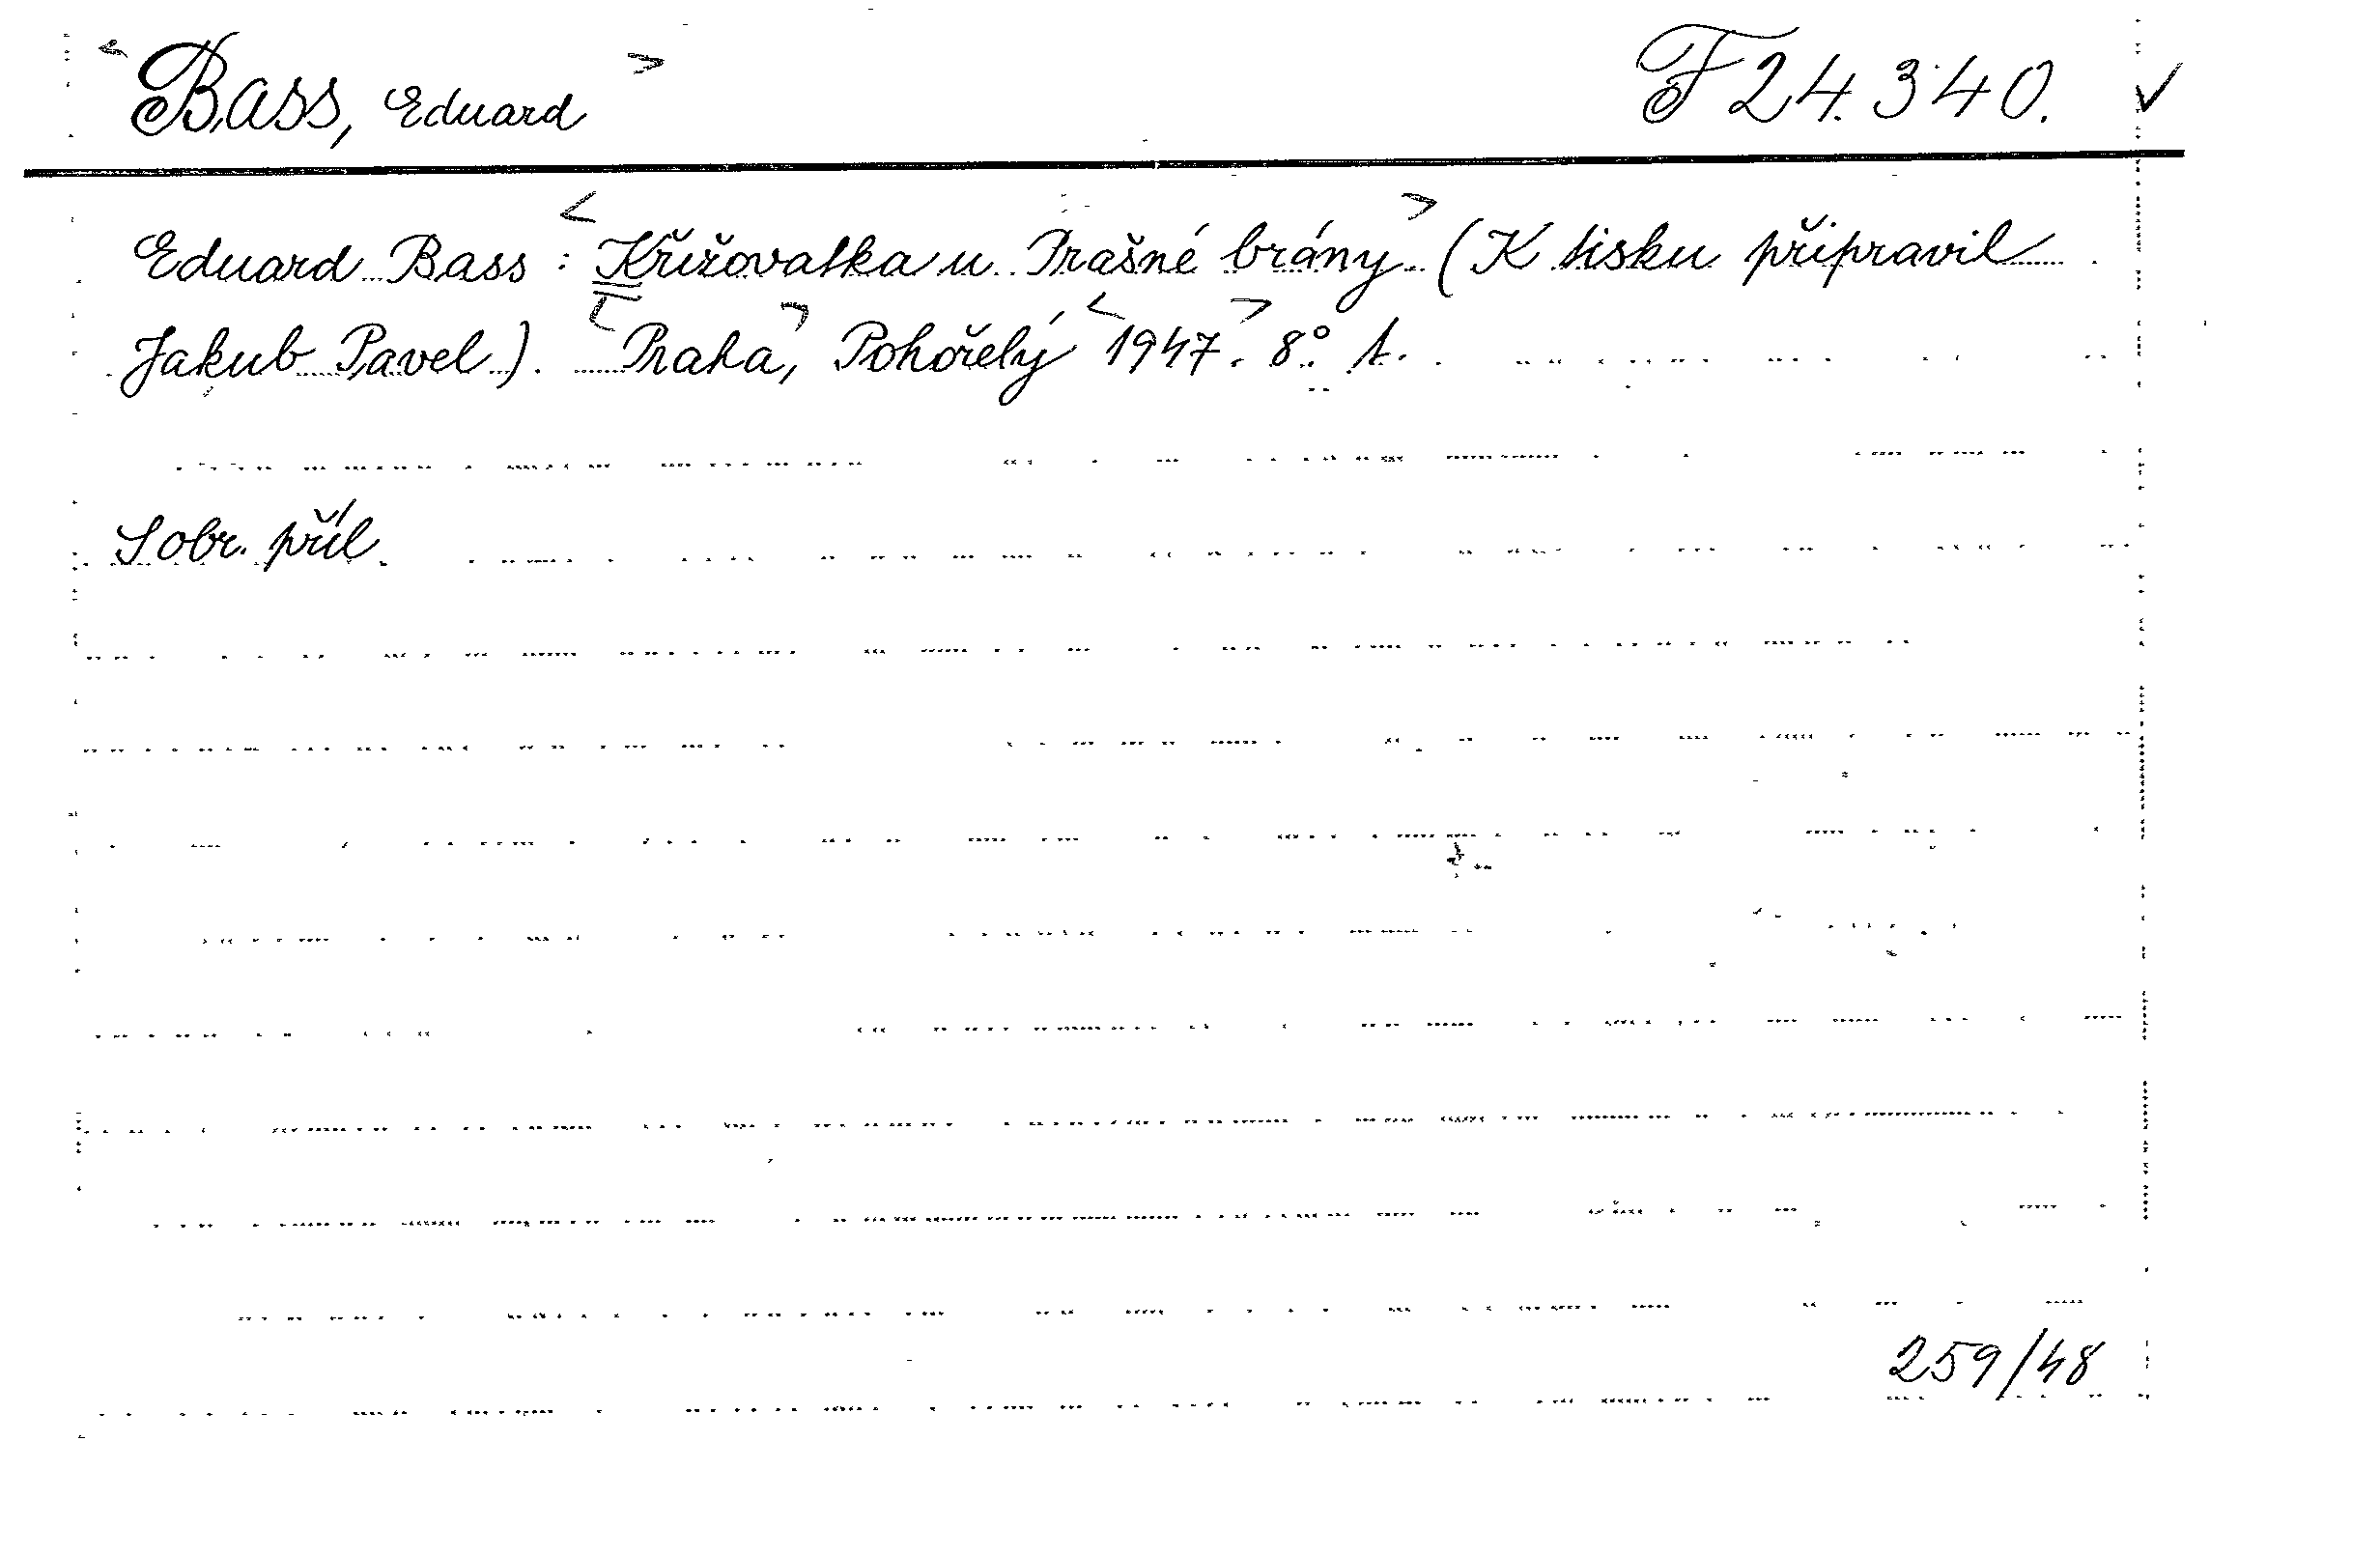 <Bass, Eduard> F 24.340. ✓
Eduard Bass: <Křižovatka u Prašné brány> (K tisku připravil
Jakub Pavel). <Praha>, Pohořelý <1947>. 8°.
S obr. příl.
259/48